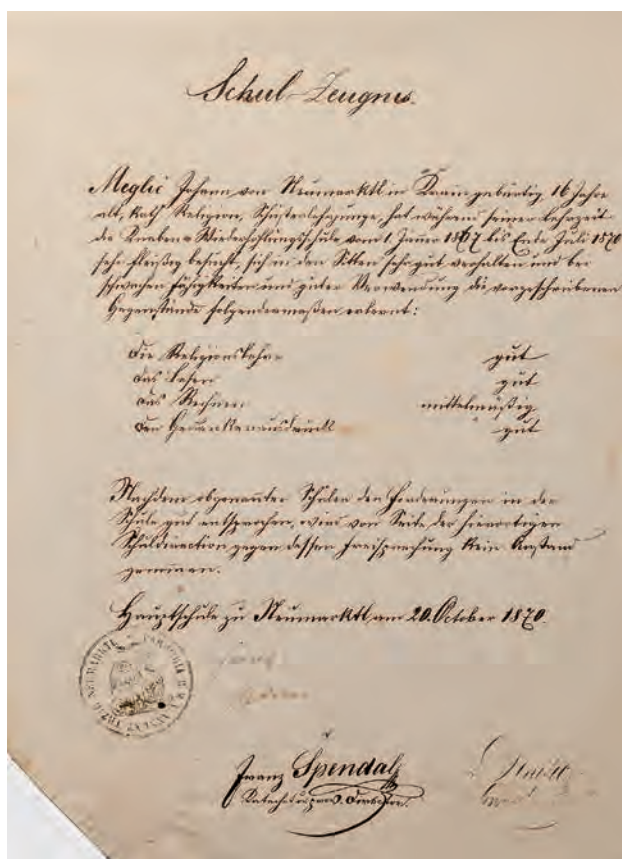 Schul-Zeugnis.
Meglić Johann von Neumarktl in Krain gebürtig 16 Jahre
alt, Kath Religion, Schusterlehrjunge, hat während seiner Lehrzeit
die Knaben-Wiederhohlungsschule vom 1. Jänner 1867 bis Ende Juli 1870
sehr fleißig besucht, sich in den Sitten sehr gut verhalten und bei
schwachen Fähigkeiten und guter Verwendung die vorgeschriebenen
Gegenstände folgendermaßen erlernt:
Die Religionslehre gut
das Lesen gut
das Rechnen mittelmäßig
den Gedankenausdruck gut
Nachdem obgenannter Schüler den Forderungen in der
Schule gut entsprochen, wird von Seite der hierortigen
Schuldirection gegen dessen Freisprechung kein Anstand
genommen.
Hauptschule zu Neumarktl, am 20. October 1870.
Franz Spendal
Katechet u. prov. Direktor.